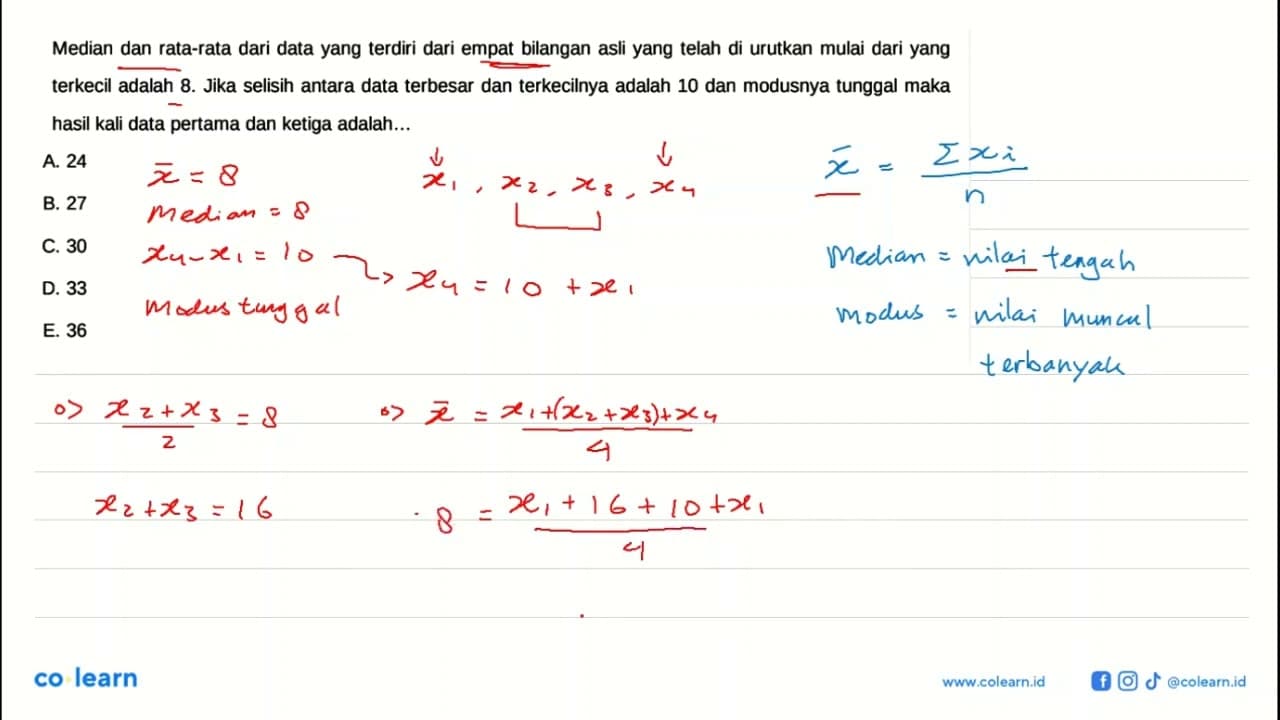 Median dan rata-rata dari data yang terdiri dari empat bilangan asli yang telah di urutkan mulai dari yang
terkecil adalah 8. Jika selisih antara data terbesar dan terkecilnya adalah 10 dan modusnya tunggal maka
hasil kali data pertama dan ketiga adalah...
A. 24
B. 27
C. 30
D. 33
E. 36
x̄ = 8
Median = 8
x₄ - x₁ = 10
Modus tunggal
↓ ↓
x₁, x₂, x₃, x₄
x₄ = 10 + x₁
x̄ = Σxi / n
Median = nilai tengah
Modus = nilai muncul
terbanyak
o> (x₂ + x₃) / 2 = 8
x₂ + x₃ = 16
o> x̄ = (x₁ + (x₂ + x₃) + x₄) / 4
8 = (x₁ + 16 + 10 + x₁) / 4
co learn
www.colearn.id
@colearn.id